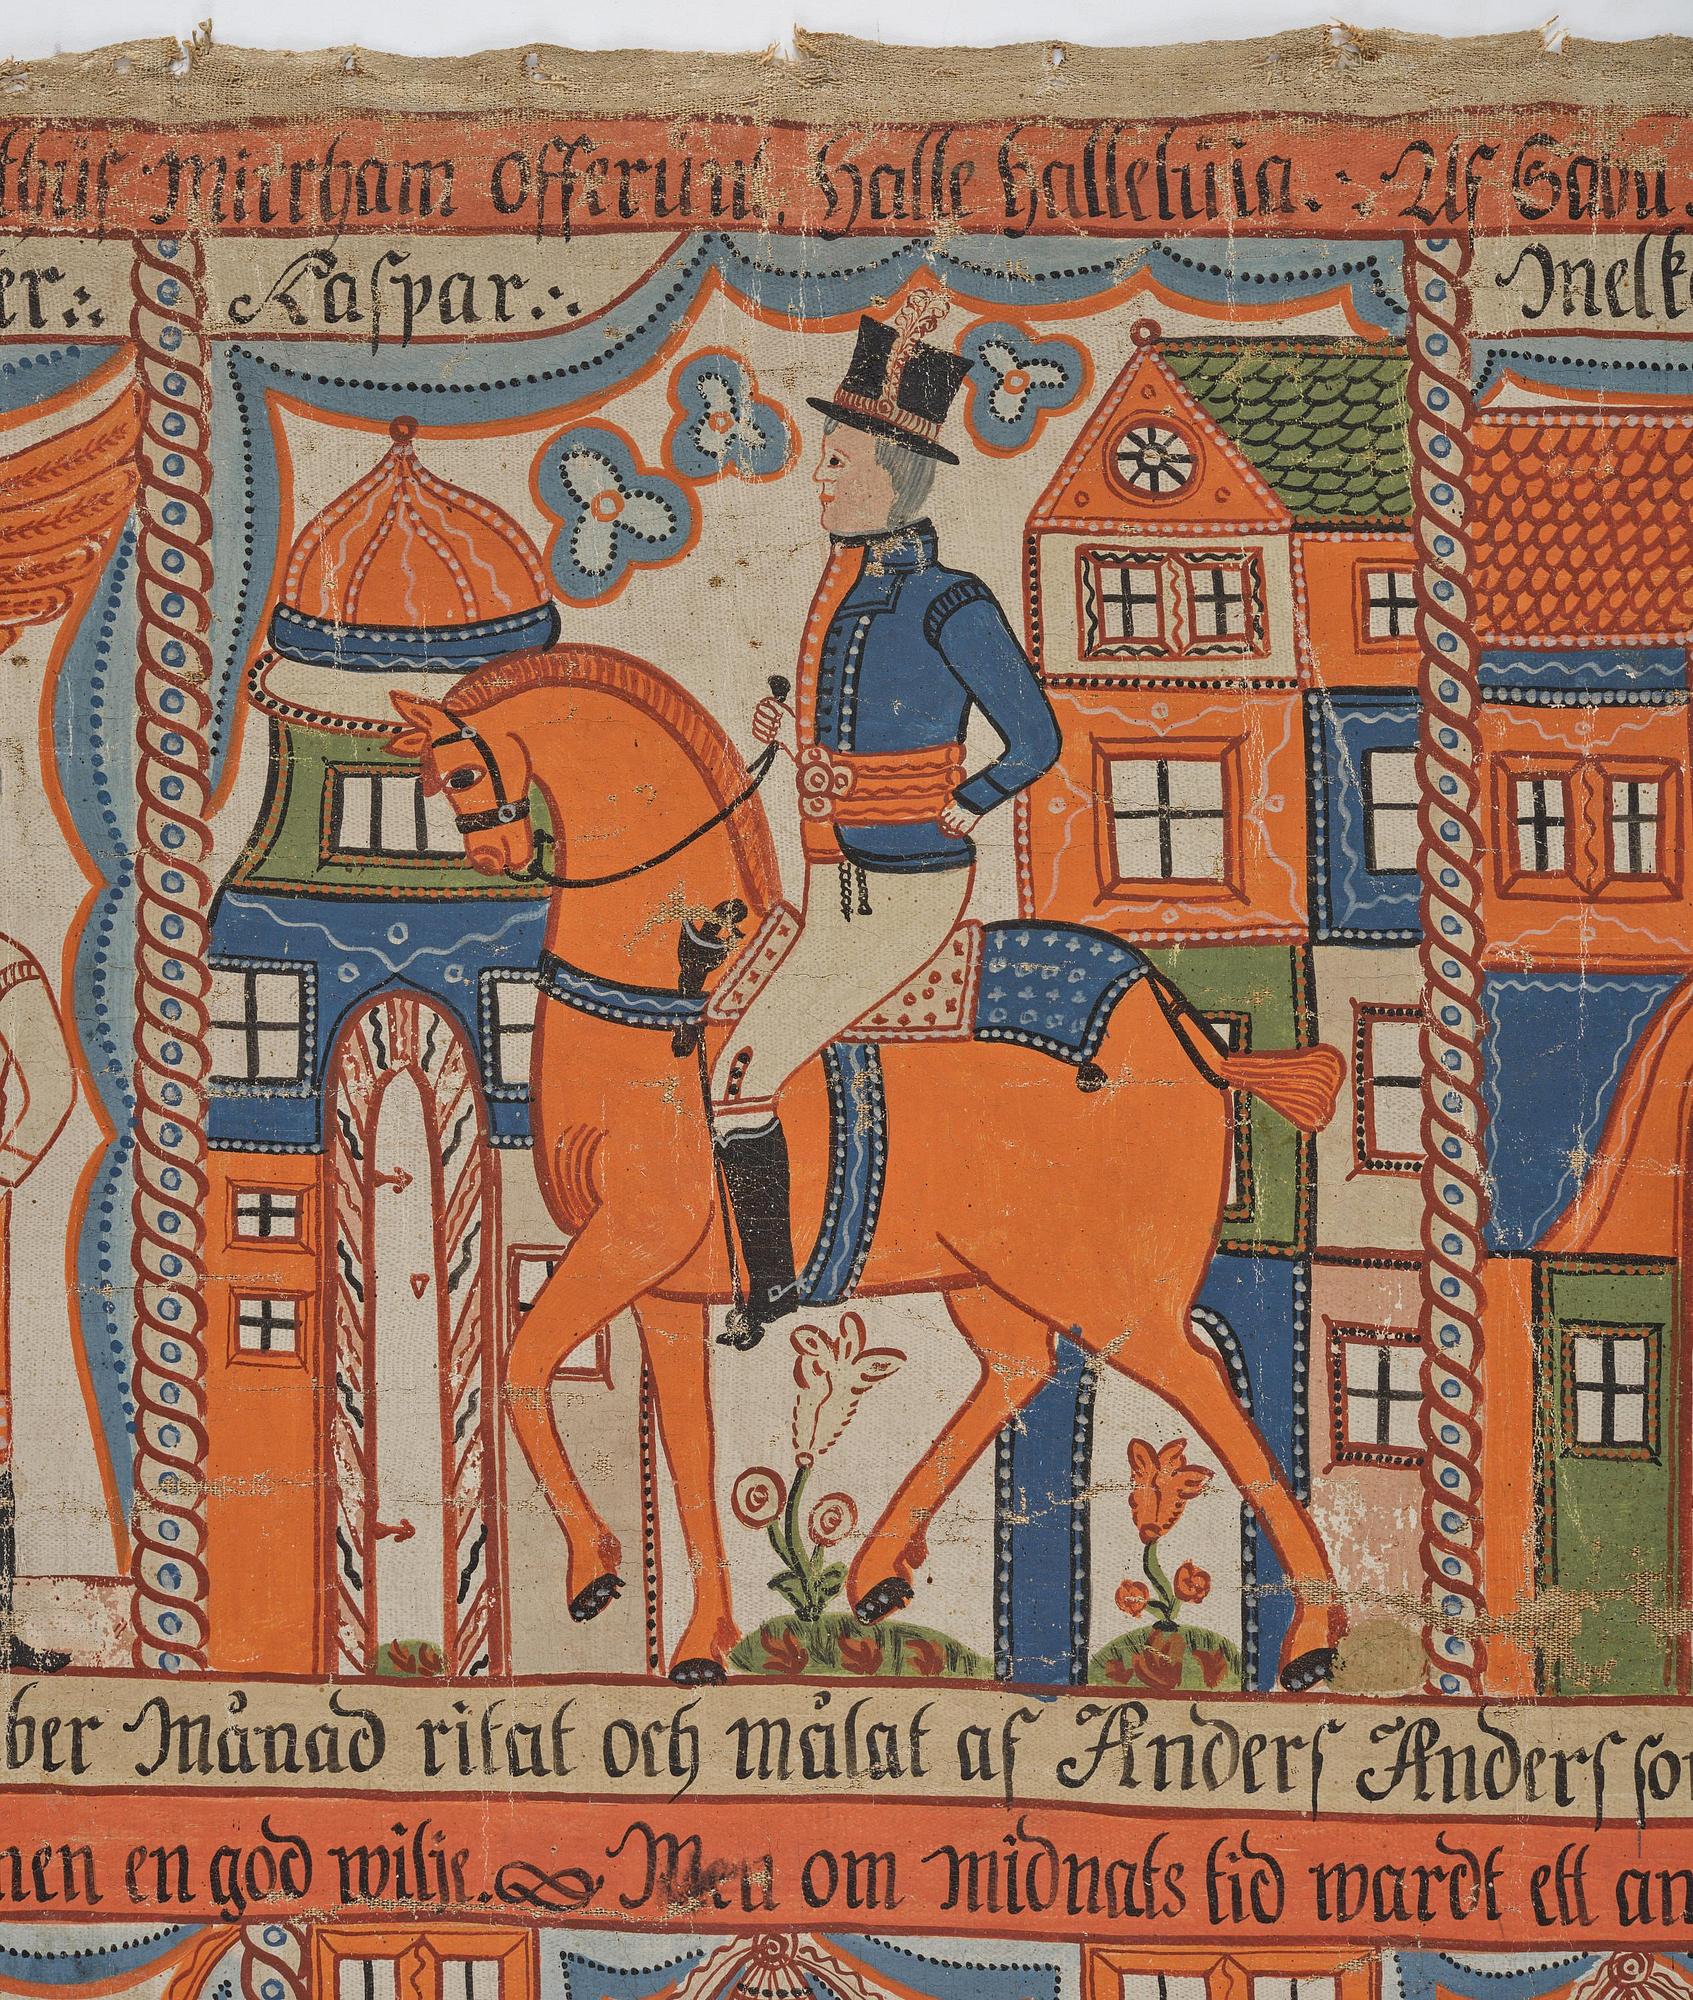 thus Mirrham offerunt. Halle halleluia. : Af Saba
er: Kaspar: Melk
ber Månad ritat och målat af Anders Anders son
nen en god wilje. Men om midnats tid wardt ett an